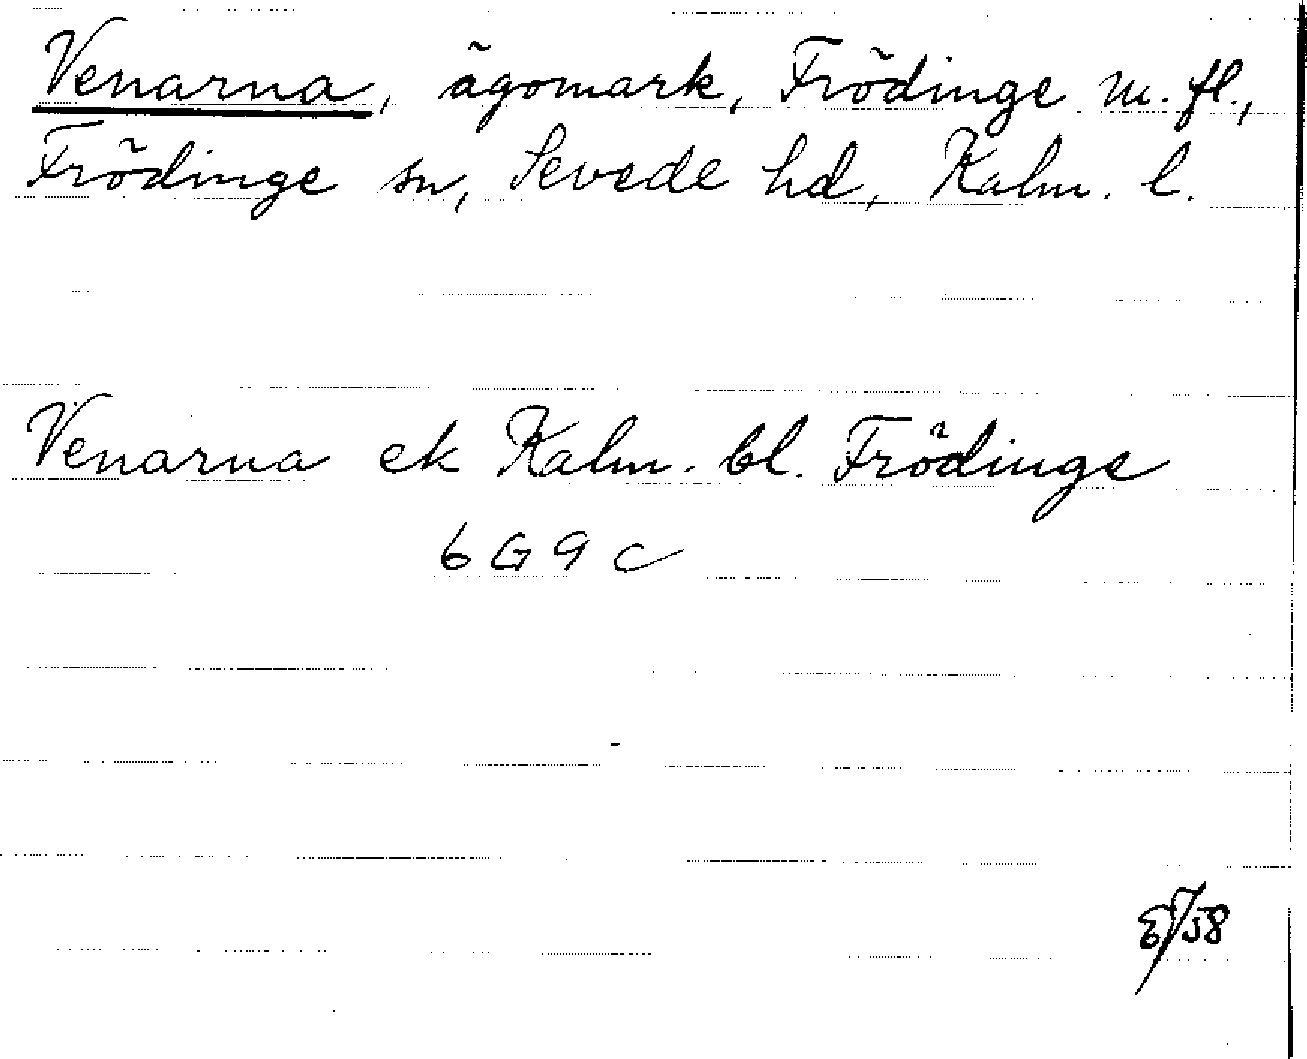 Venarna, ägomark, Frödinge m. fl.,
Frödinge sn, Sevede hd, Kalm. l.
Venarna ek Kalm. bl. Frödinge
6 G 9 c